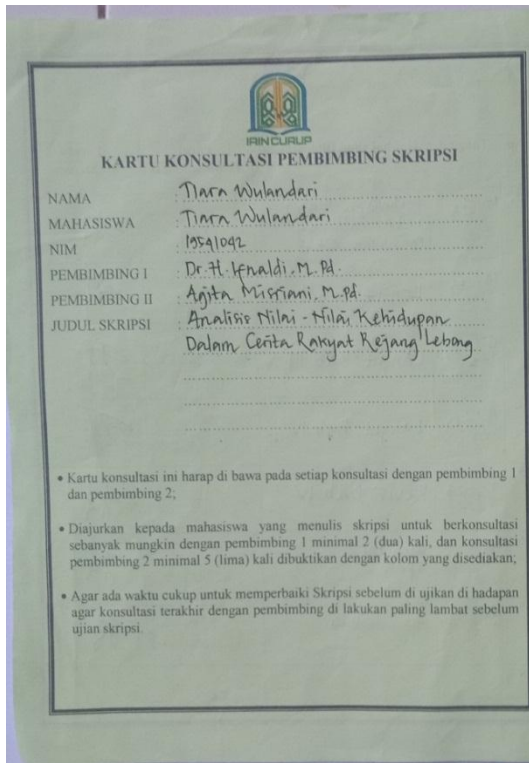 IAIN CURUP
KARTU KONSULTASI PEMBIMBING SKRIPSI
NAMA : Tiara Wulandari
MAHASISWA : Tiara Wulandari
NIM : 19541042
PEMBIMBING I : Dr. H. Ifnaldi. M. Pd.
PEMBIMBING II : Agita Misriani. M. Pd.
JUDUL SKRIPSI : Analisis Nilai - Nilai Kehidupan
Dalam Cerita Rakyat Rejang Lebong
• Kartu konsultasi ini harap di bawa pada setiap konsultasi dengan pembimbing 1
dan pembimbing 2;
• Diajurkan kepada mahasiswa yang menulis skripsi untuk berkonsultasi
sebanyak mungkin dengan pembimbing 1 minimal 2 (dua) kali, dan konsultasi
pembimbing 2 minimal 5 (lima) kali dibuktikan dengan kolom yang disediakan;
• Agar ada waktu cukup untuk memperbaiki Skripsi sebelum di ujikan di hadapan
agar konsultasi terakhir dengan pembimbing di lakukan paling lambat sebelum
ujian skripsi.